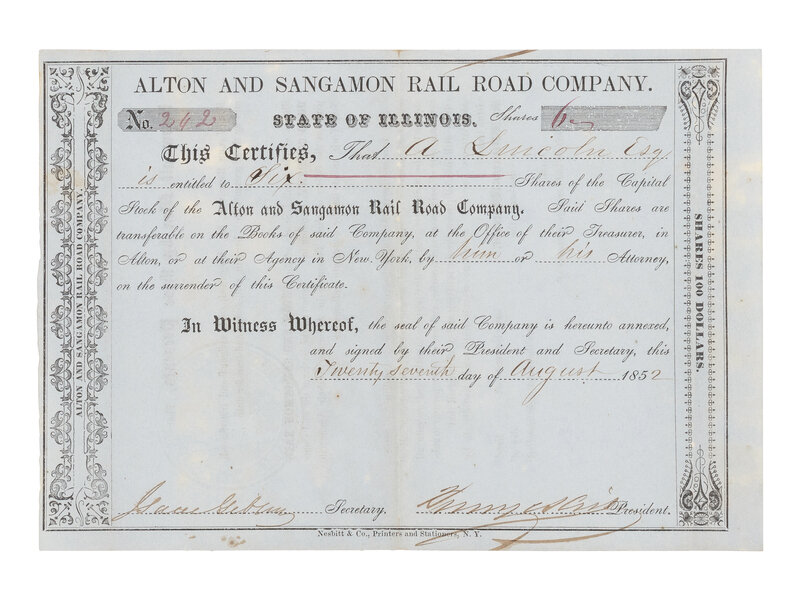 ALTON AND SANGAMON RAIL ROAD COMPANY.
No. 242 STATE OF ILLINOIS. Shares 6
This Certifies, That A Lincoln Esq
is entitled to Six Shares of the Capital
Stock of the Alton and Sangamon Rail Road Company. Said Shares are
transferable on the Books of said Company, at the Office of their Treasurer, in
Alton, or at their Agency in New York, by him or his Attorney,
on the surrender of this Certificate.
In Witness Whereof, the seal of said Company is hereunto annexed,
and signed by their President and Secretary, this
Twenty Seventh day of August 1852
Isaac Secretary. President.
Nesbitt & Co., Printers and Stationers, N. Y.
ALTON AND SANGAMON RAIL ROAD COMPANY.
SHARES 100 DOLLARS